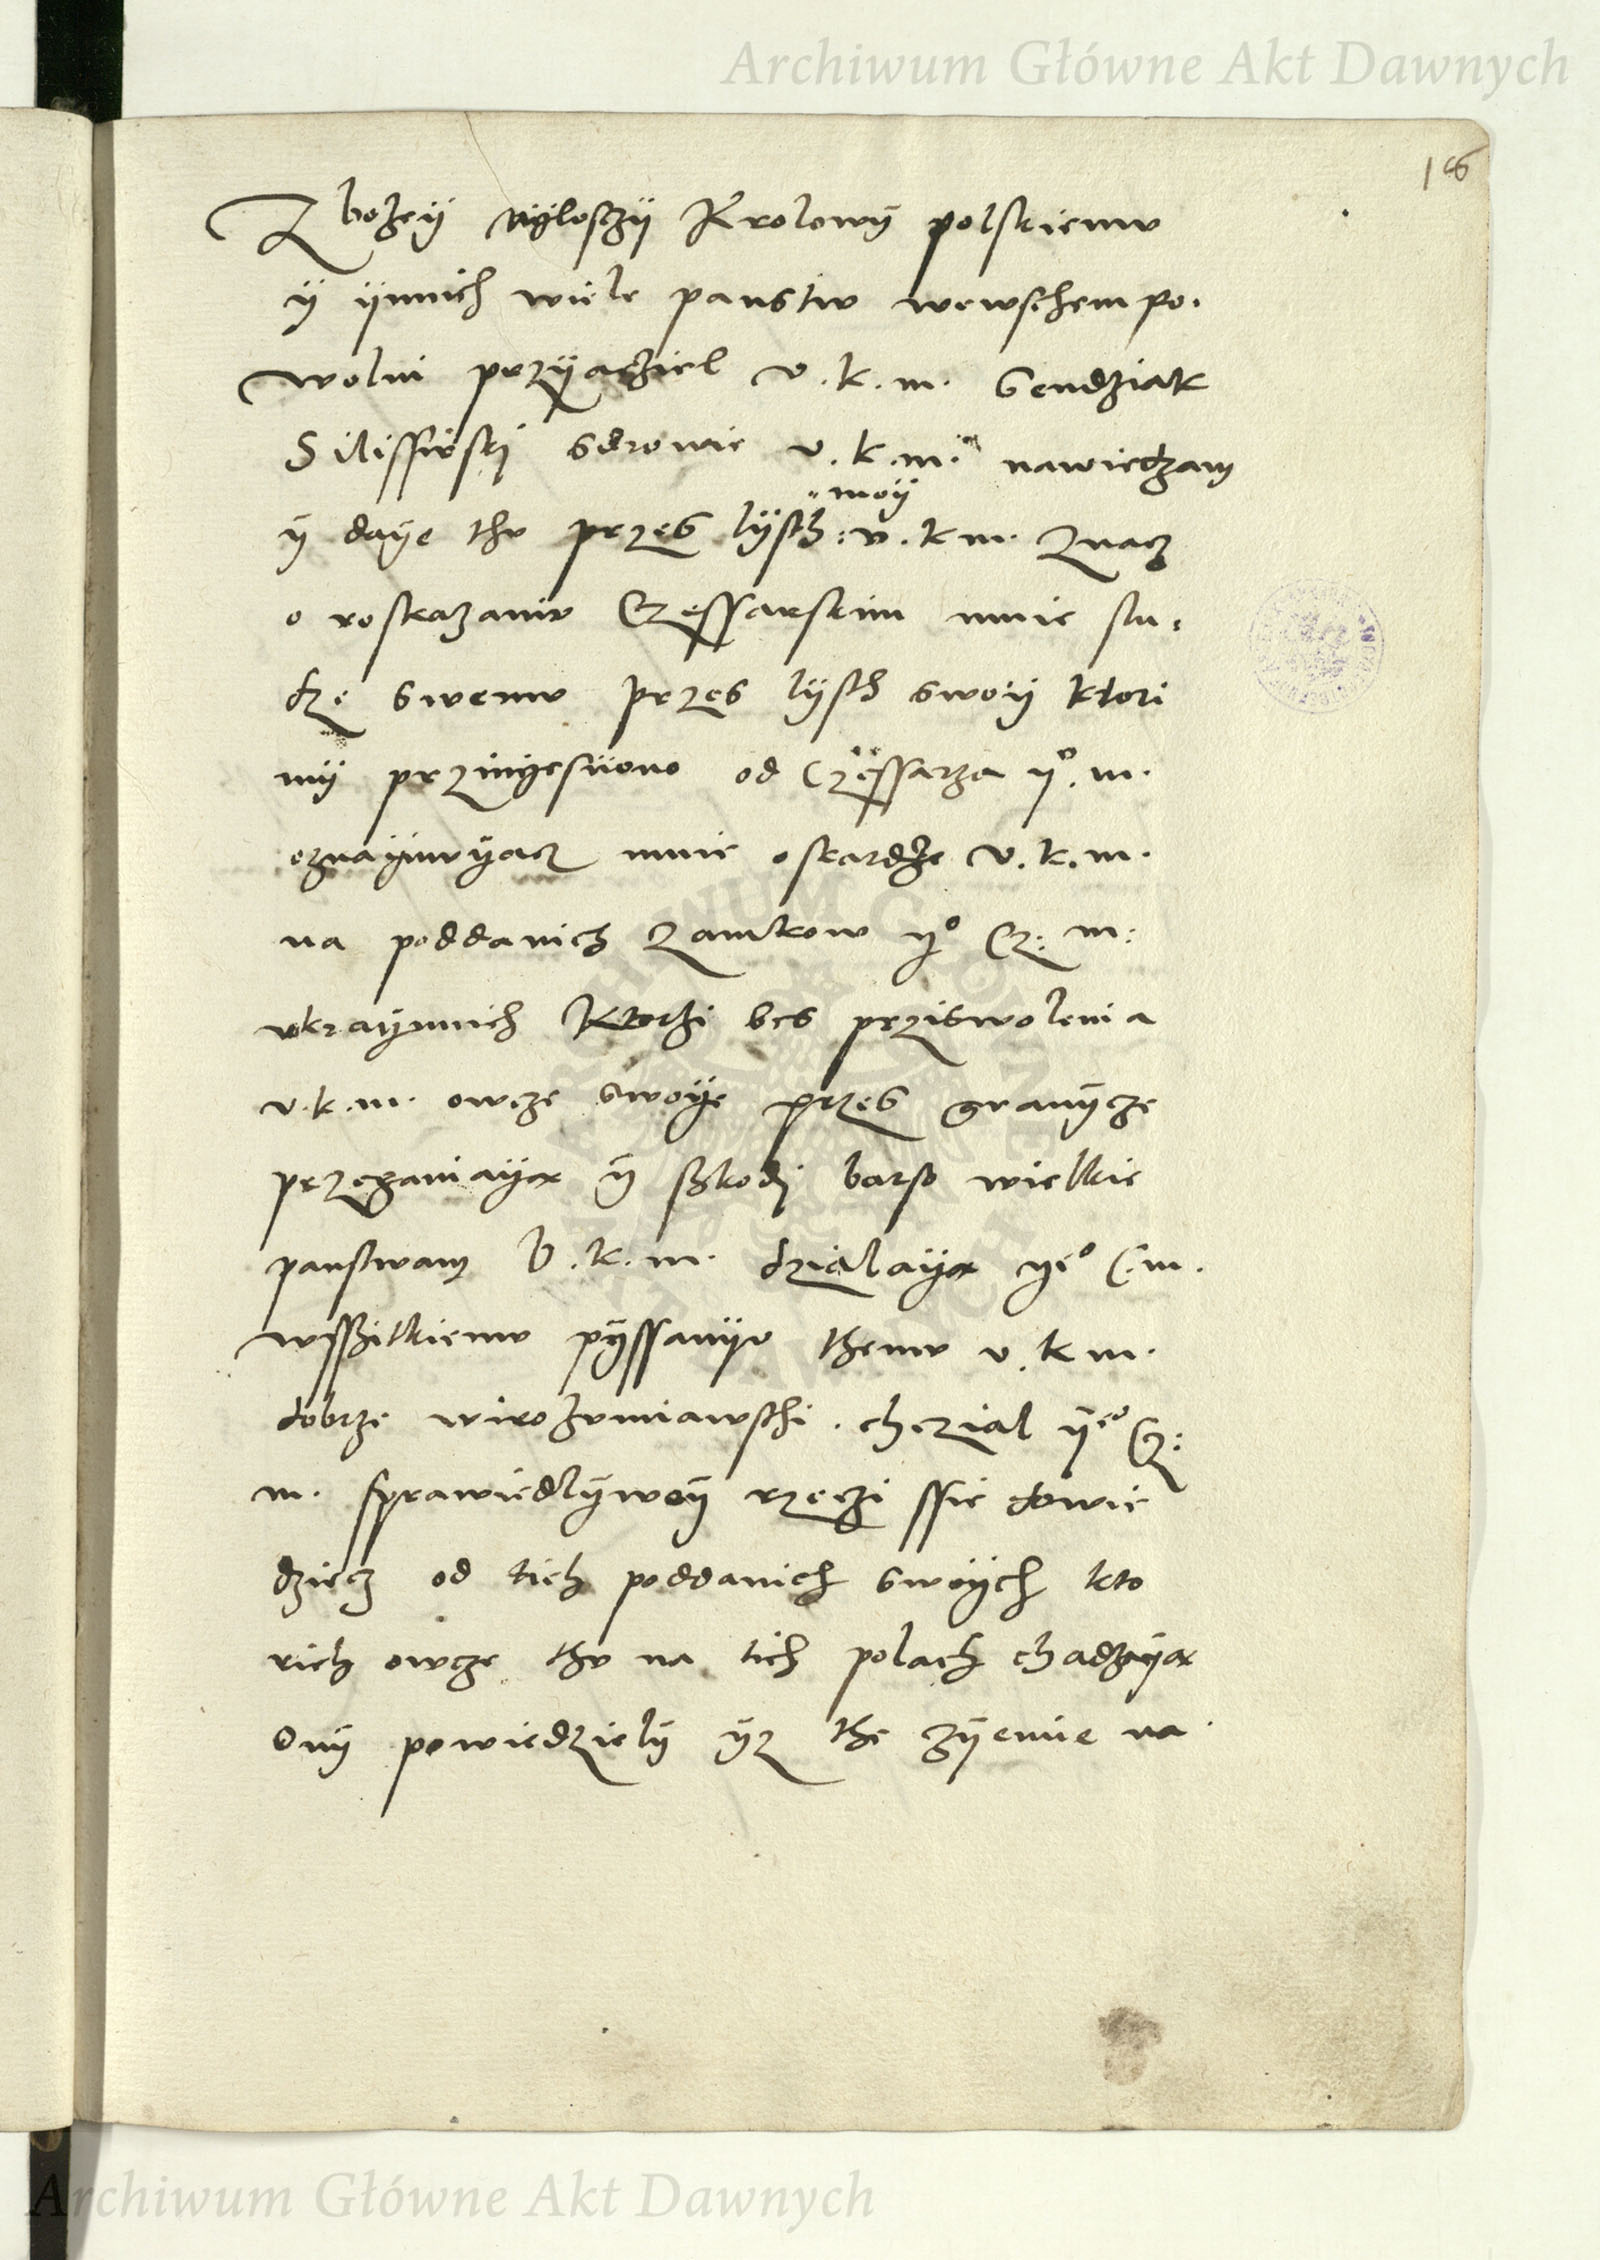 Archiwum Główne Akt Dawnych
186
Z bożey myloszży Krolowy polskiemv
y ynnich wiele panstw wewschem po.
wolni przyaczhiel v. k. m. Sendziak
Silissirski sdrowie v. k. m. nawiedzam
moy
y daye thv przes lysth : v. k m. znacz
o roskazaniv Czessarskim mnie slu:
dze swemv przes lysth swoy ktori
my przinyesiiono od Czessarza yo. m.
oznaymvyacz mnie oskardze v. k. m.
na poddanich zamkow yo Cz: m:
vkraynnich Ktorzi bes prziswolenia
v. k. m. owcze swoye przes granycze
przeganiaya y szkodi barso wielkie
panstwam v. k. m. dzialaya yeo C. m.
wsszitkiemv pyssanyv themv v. k m.
dobrze wirozvmiawschi. chczial yeo Cz:
m. sprawiedlywey rzeczi ssie dowie
dziecz od tich poddanich swoych kto
rich owcze thv na tich polach chadzaya
Ony powiedziely yz the zyemie na
Archiwum Główne Akt Dawnych